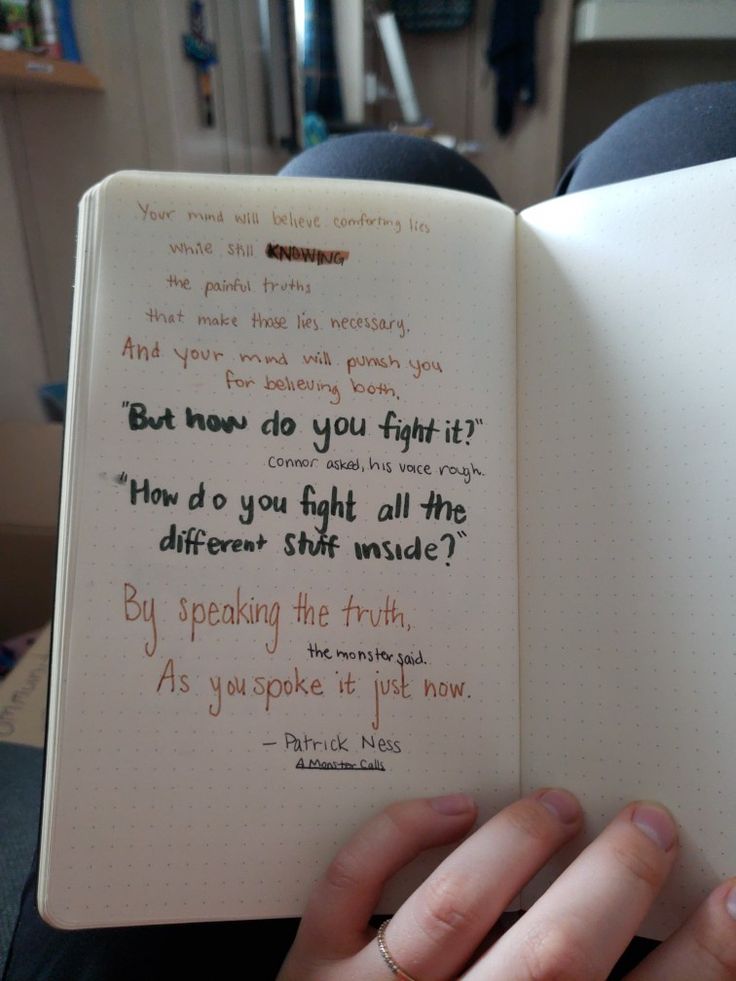 Your mind will believe comforting lies
while still KNOWING
the painful truths
that make those lies necessary.
And your mind will punish you
for believing both.
"But how do you fight it?"
connor asked, his voice rough.
"How do you fight all the
different stuff inside?"
By speaking the truth,
the monster said.
As you spoke it just now.
– Patrick Ness
A Monster Calls